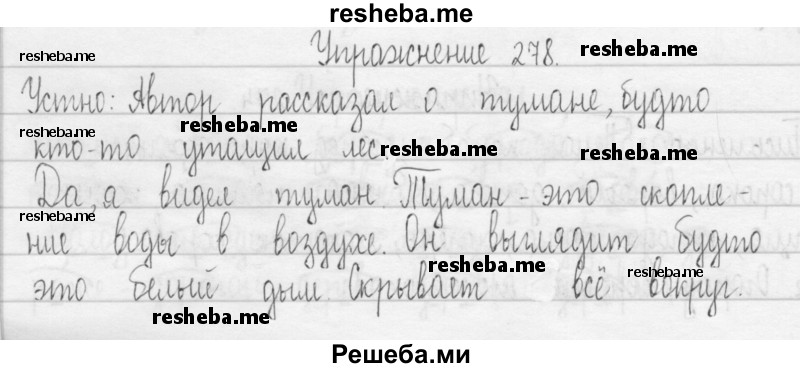 resheba.me
Упражнение 278. resheba.me
resheba.me
Устно: Автор рассказал о тумане, будто
resheba.me
кто-то утащил лес. resheba.me resheba.me
Да, я видел туман. Туман - это скопле-
resheba.me
ние воды в воздухе. Он выглядит будто
resheba.me resheba.me
это белый дым. Скрывает всё вокруг.
resheba.me
Решеба.ми